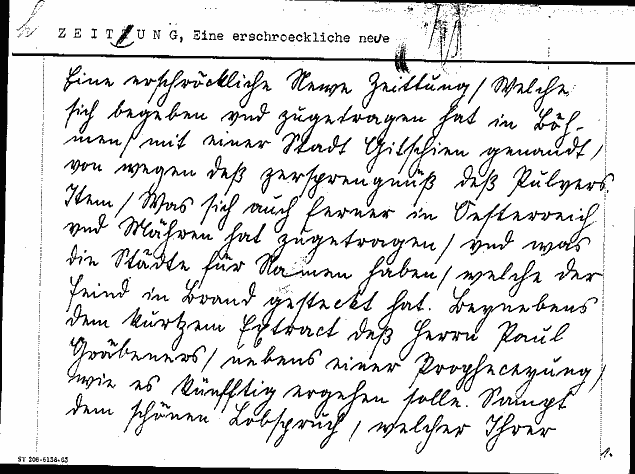 ZEITUNG, Eine erschroeckliche neue
Eine erschröckliche Newe Zeittung / Welche
sich begeben vnd zugetragen hat in Böh-
men / mit einer Stadt Gitschien genandt /
von wegen deß zersprengnüß deß Pulvers.
Item / Was sich auch ferner in Oesterreich
vnd Mähren hat zugetragen / vnd was
die Städte für Namen haben / welche der
Feind in Brand gesteckt hat. Beynebens
dem kurtzem Extract deß Herrn Paul
Gräbeners / nebens einer Propheceyung /
wie es künfftig ergehen solle. Sampt
dem schönen Lobspruch / welcher Ihrer
1.
ST 206-6138-63